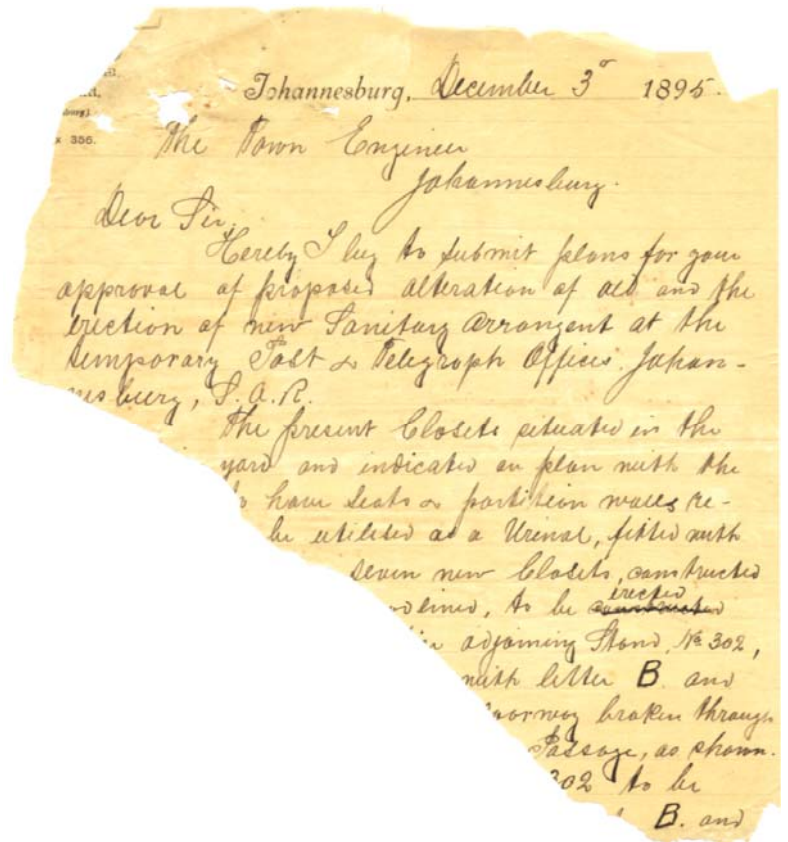 x 356.
Johannesburg, December 3d 1895.
The Town Engineer
Johannesburg.
Dear Sir,
Hereby I beg to submit plans for your
approval of proposed alteration of old and the
erection of new Sanitary Arrangent at the
temporary Post & Telegraph Offices. Johan-
nesburg, S.A.R.
The present Closets situated in the
yard and indicated on plan with the
to have seats & partition walls re-
be utilised as a Urinal, fitted with
seven new Closets, constructed
lined, to be constructed erected
adjoining Stand, No 302,
with letter B. and
doorway broken through
Passage, as shown.
302 to be
B. and